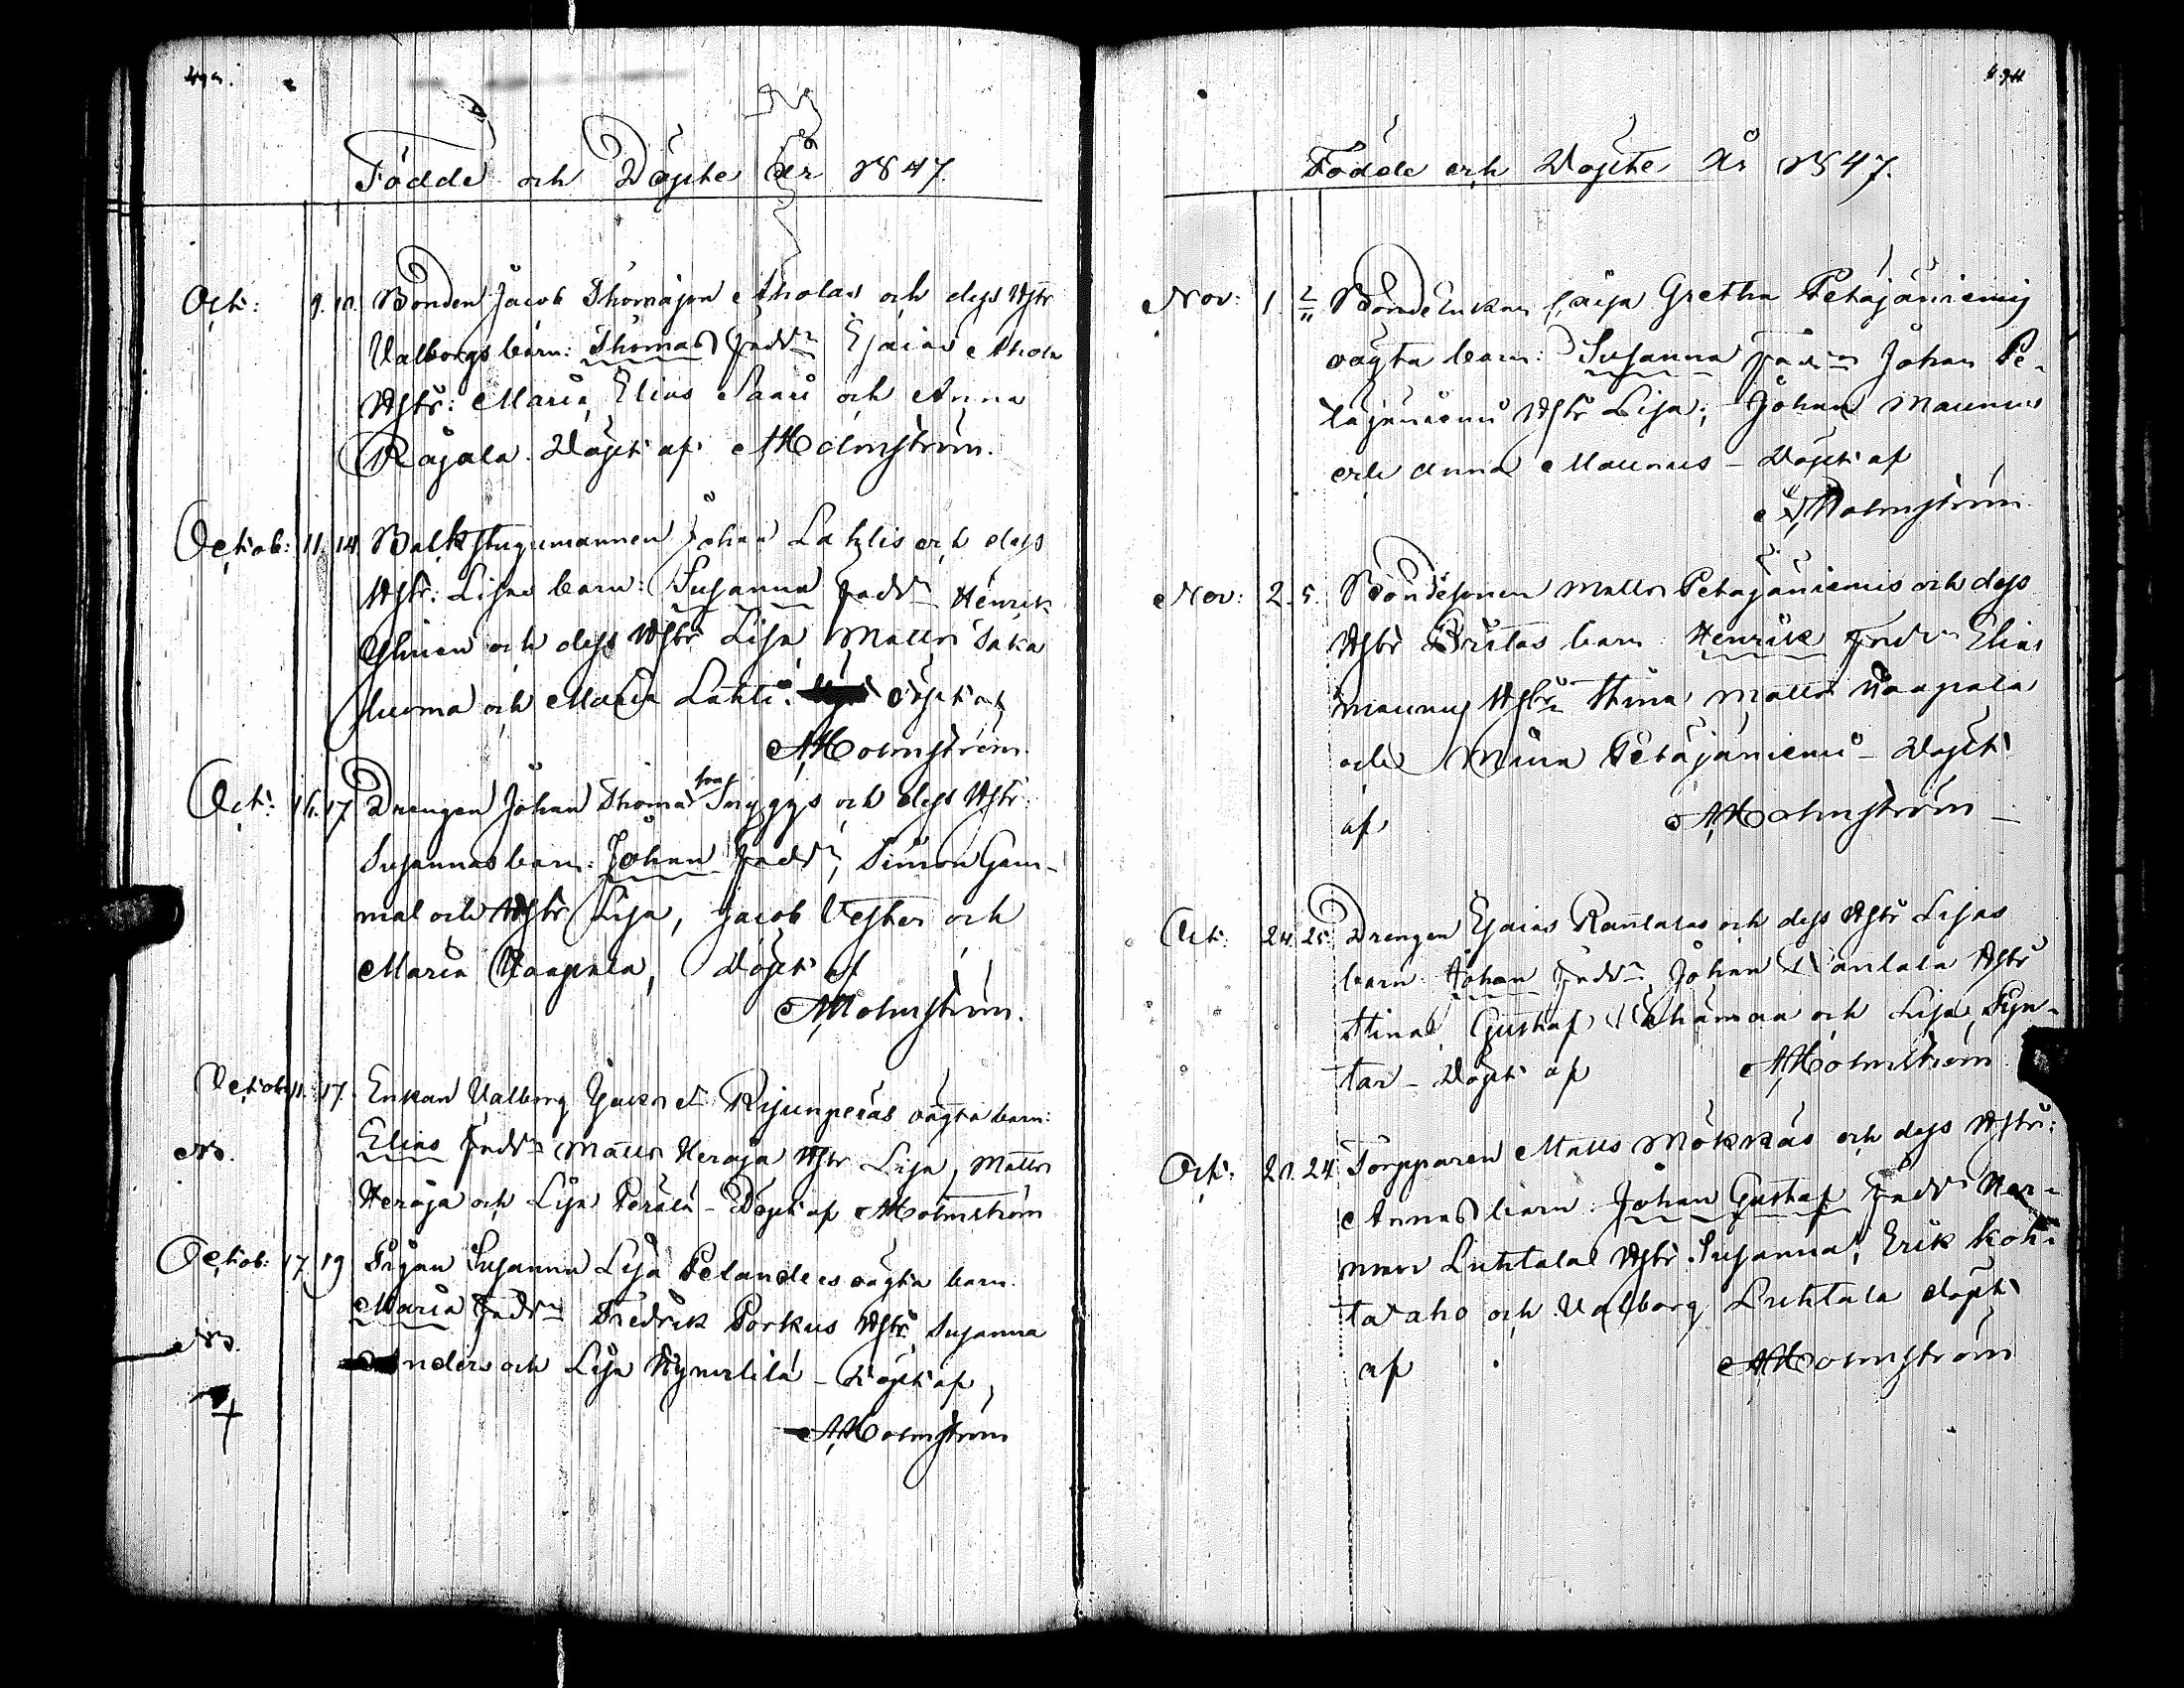 Födde och Döpte År 1847.
Oct: 9. 10. Bonden Jacob Thomasson Aholas och dess Hstr
Valborgs barn: Thomas Faddr Esaias Ahola
Hstr: Maria, Elias Saari och Anna
Rajala. Döpt af AHolmström.
Octob: 11. 14 Backstugumannen Johan Lahtis och dess
Hstr: Lisas barn: Susanna Faddr Henrik
Ylinen och dess Hstr Lisa Matts Saka
och Maria Lahti. döpt af
AHolmström.
Oct: 16. 17 Drengen Johan Thomas son Snyggs och dess Hstr
Susannas barn: Johan Faddr, Simon Gam-
mal och Hstr Lisa, Jacob Vesker och
Maria Haapala, Döpt af
AHolmström.
Octob: 11. 17. Enkan Valborg Rijunperäs oägta barn:
No. Elias Faddr Matts Heroja Hstr Lisa, Matts
Heroja och Lisa Perälä - Döpt af AHolmström
Octob: 17. 19 Pigan Susanna Lisa Pelanders oägta barn.
No. Maria Faddr Fredrik Porkus Hstr Susanna
och Lisa - Döpt af
AHolmström
Födde och Döpte År 1847.
Nov: 1. 2/11 Bonde Enkan Caisa Gretha Petäjäniemis
oägta barn: Susanna Faddr Johan Pe-
täjäniemi Hstr Lisa; Johan Maunus
och Anna Maunus - Döpt af
AHolmström.
Nov: 2. 5. Bondesonen Matts Petäjäniemis och dess
Hstr Britas barn Henrik Faddr Elias
Maunus Hstr Stina Matts Haapala
och Petäjäniemi - Döpt
af AHolmström -
Oct: 24. 25. Drengen Esaias Rantalas och dess Hstr Lisas
barn Johan Faddr Johan Rantala Hstr
Stina Gustaf och Lisa Pyn-
tar - Döpt af AHolmström
Oct: 20. 24 Torpparen Matts Mökkäs och dess Hstr:
Annas barn: Johan Gustaf Faddr Her-
man Luhtala Hstr Susanna, Erik Koh-
taaho och Valborg Luhtala döpt
af AHolmström